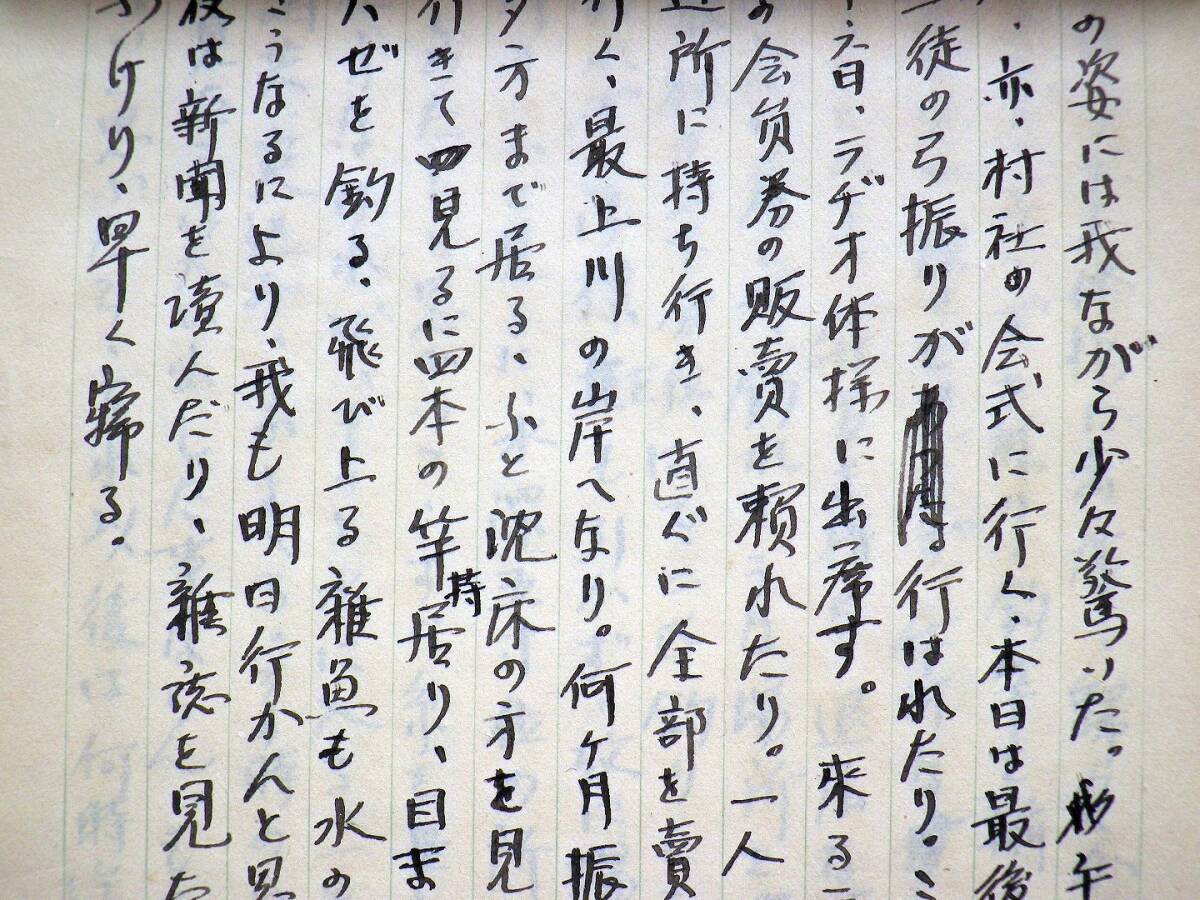 の姿には我ながら少々驚いた。 午
、亦、村社の会式に行く、本日は最後
徒の弓振りが 行はれたり。ミ
六日、ラヂオ体操に出席す。 來る
の会員券の販賣を頼れたり。一人
所に持ち行き、直ぐに全部を賣
行く、最上川の岸へなり。何ヶ月振
夕方まで居る、ふと沈床の方を見
行きて四見るに四本の竿持居り、目ま
ハゼを釣る、飛び上る雜魚も水の
うなるにより、我も明日行かんと思
夜は新聞を讀んだり、雜誌を見た
ふけり、早く寢る。